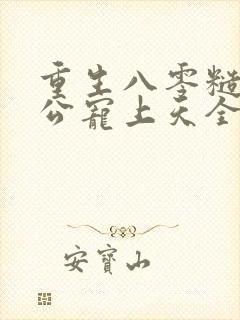 重生八零糙
公宠上天全
安寶山